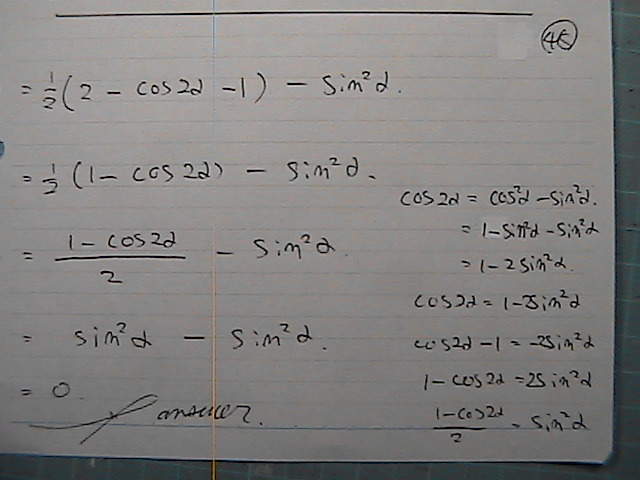 45
= 1/2 (2 - cos2α - 1) - sin²α.
= 1/2 (1 - cos2α) - sin²α.
= (1 - cos2α)/2 - sin²α.
= sin²α - sin²α.
= 0.
answer.
cos2α = cos²α - sin²α.
= 1 - sin²α - sin²α
= 1 - 2sin²α.
cos2α = 1 - 2sin²α
cos2α - 1 = -2sin²α
1 - cos2α = 2sin²α
(1 - cos2α)/2 = sin²α